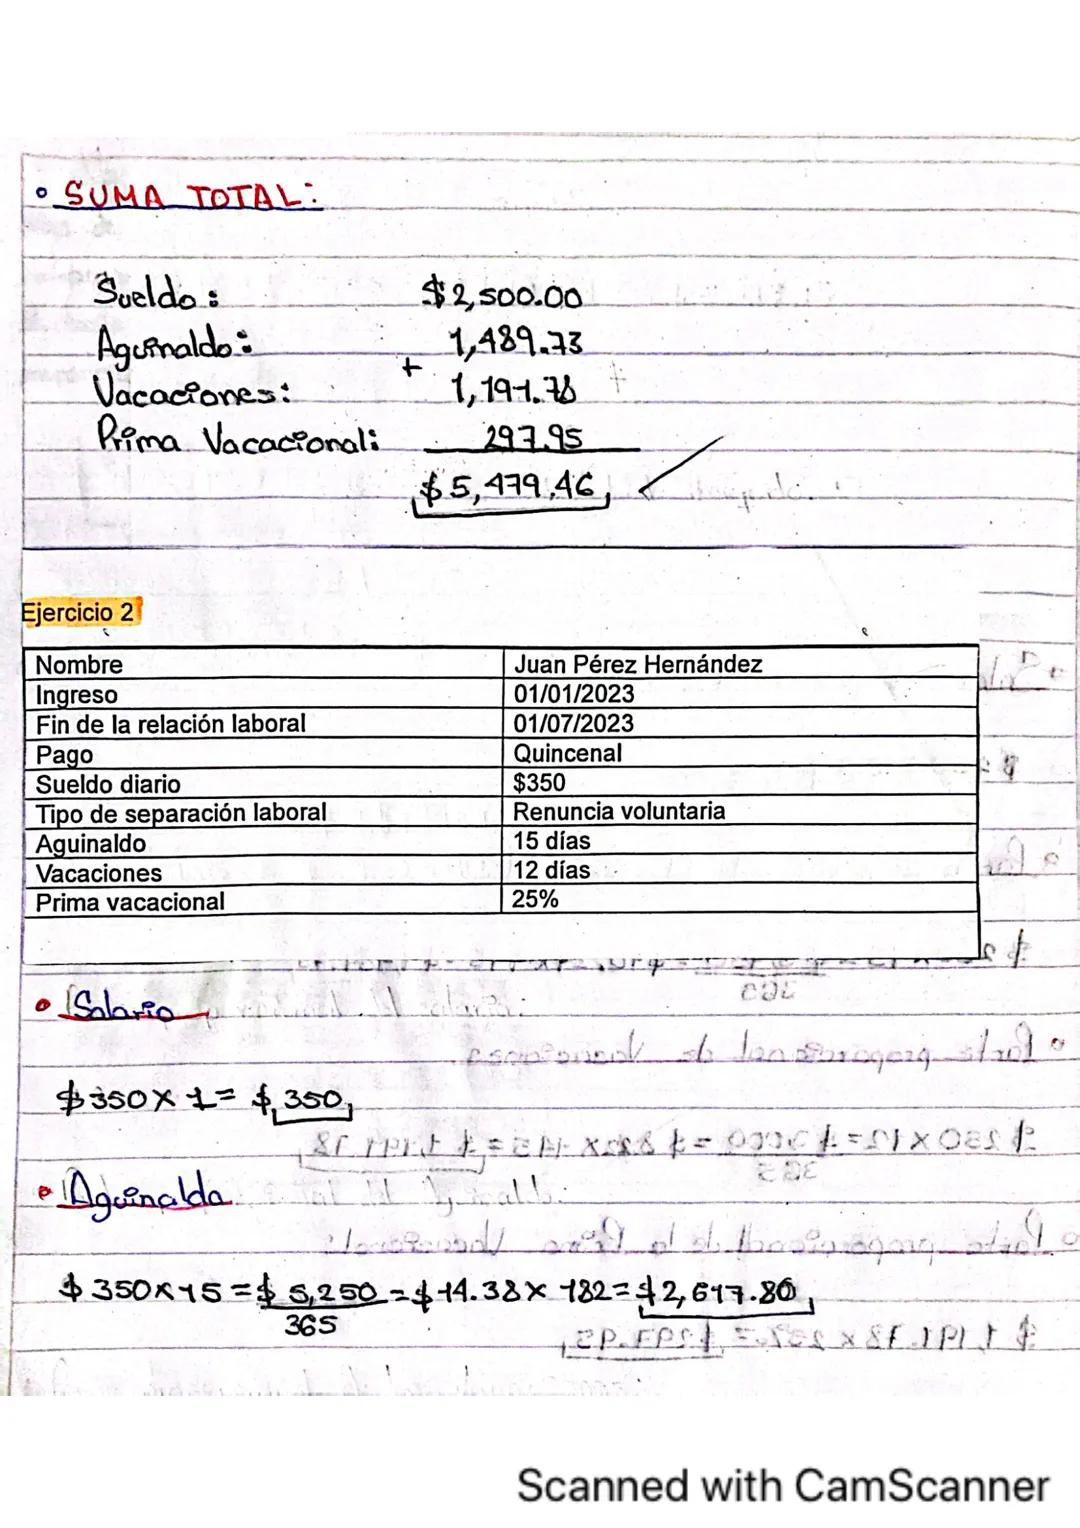 • SUMA TOTAL:
Sueldo: $2,500.00
Aguinaldo: 1,489.73
+
Vacaciones: 1,191.78
Prima Vacacional: 297.95
$5,479.46
Ejercicio 2
Nombre Juan Pérez Hernández
Ingreso 01/01/2023
Fin de la relación laboral 01/07/2023
Pago Quincenal
Sueldo diario $350
Tipo de separación laboral Renuncia voluntaria
Aguinaldo 15 días
Vacaciones 12 días
Prima vacacional 25%
• Salario
$350 x 1 = $350
• Aguinalda
$350 x 15 = $5,250 = $14.38 x 182 = $2,617.80
365
Scanned with CamScanner